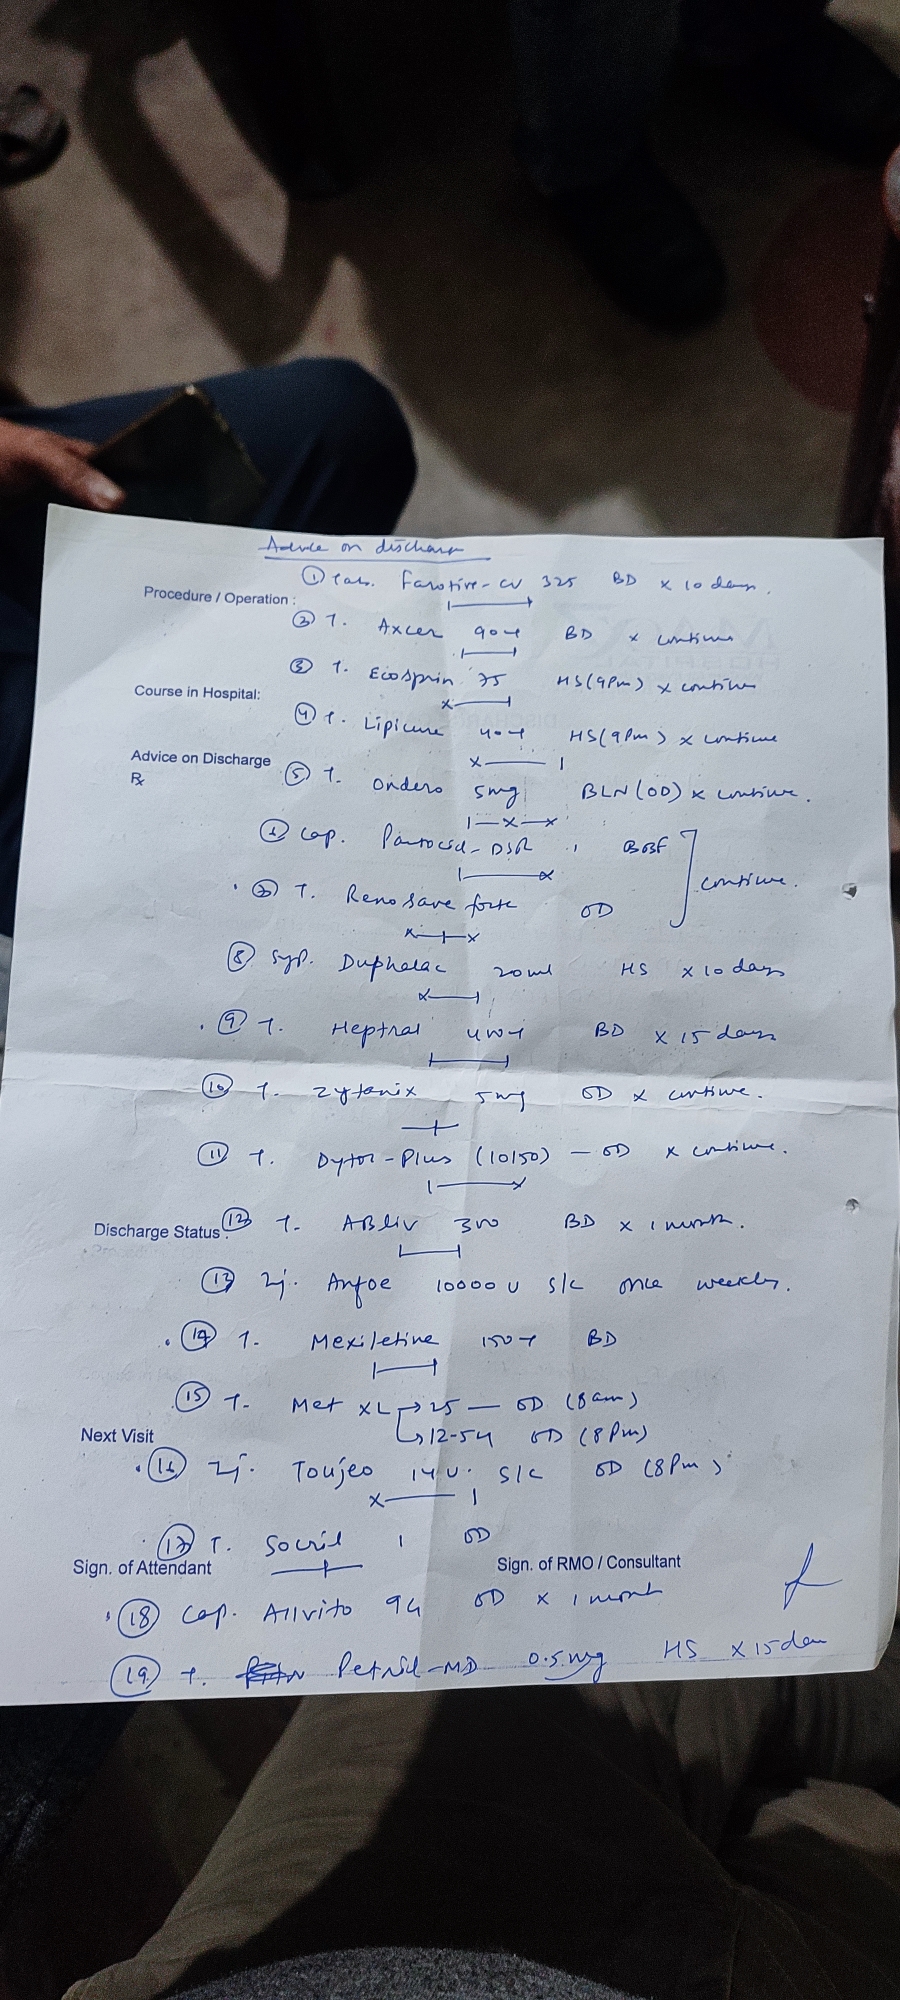 Advice on discharge
① Tab. Farotive-CV 325 BD x 10 days.
Procedure / Operation :
② T. Axcer 90mg BD x continue
③ T. Ecosprin 75 HS (9Pm) x continue
Course in Hospital:
④ T. Lipicure 40mg HS (9Pm) x continue
Advice on Discharge
Rx
⑤ T. Ondero 5mg BLN (OD) x continue.
⑥ Cap. Pantocid-DSR 1 BBF
continue.
⑦ T. Renosave forte OD
⑧ Syp. Duphalac 20ml HS x 10 days
⑨ T. Heptral 400mg BD x 15 days
⑩ T. Zytanix 5mg OD x continue.
⑪ T. Dytor-Plus (10/50) – OD x continue.
Discharge Status :
⑫ T. ABliv 300 BD x 1 month.
⑬ Inj. Anfoe 10000 U S/C once weekly.
⑭ T. Mexiletine 150mg BD
⑮ T. Met XL → 25 — OD (8am)
↳ 12.5mg OD (8Pm)
Next Visit
⑯ Inj. Toujeo 14U. S/C OD (8Pm)
⑰ T. Socril 1 OD
Sign. of Attendant Sign. of RMO / Consultant
⑱ Cap. Allvito 9G OD x 1 month
⑲ T. Petril-MD 0.5mg HS x 15 days